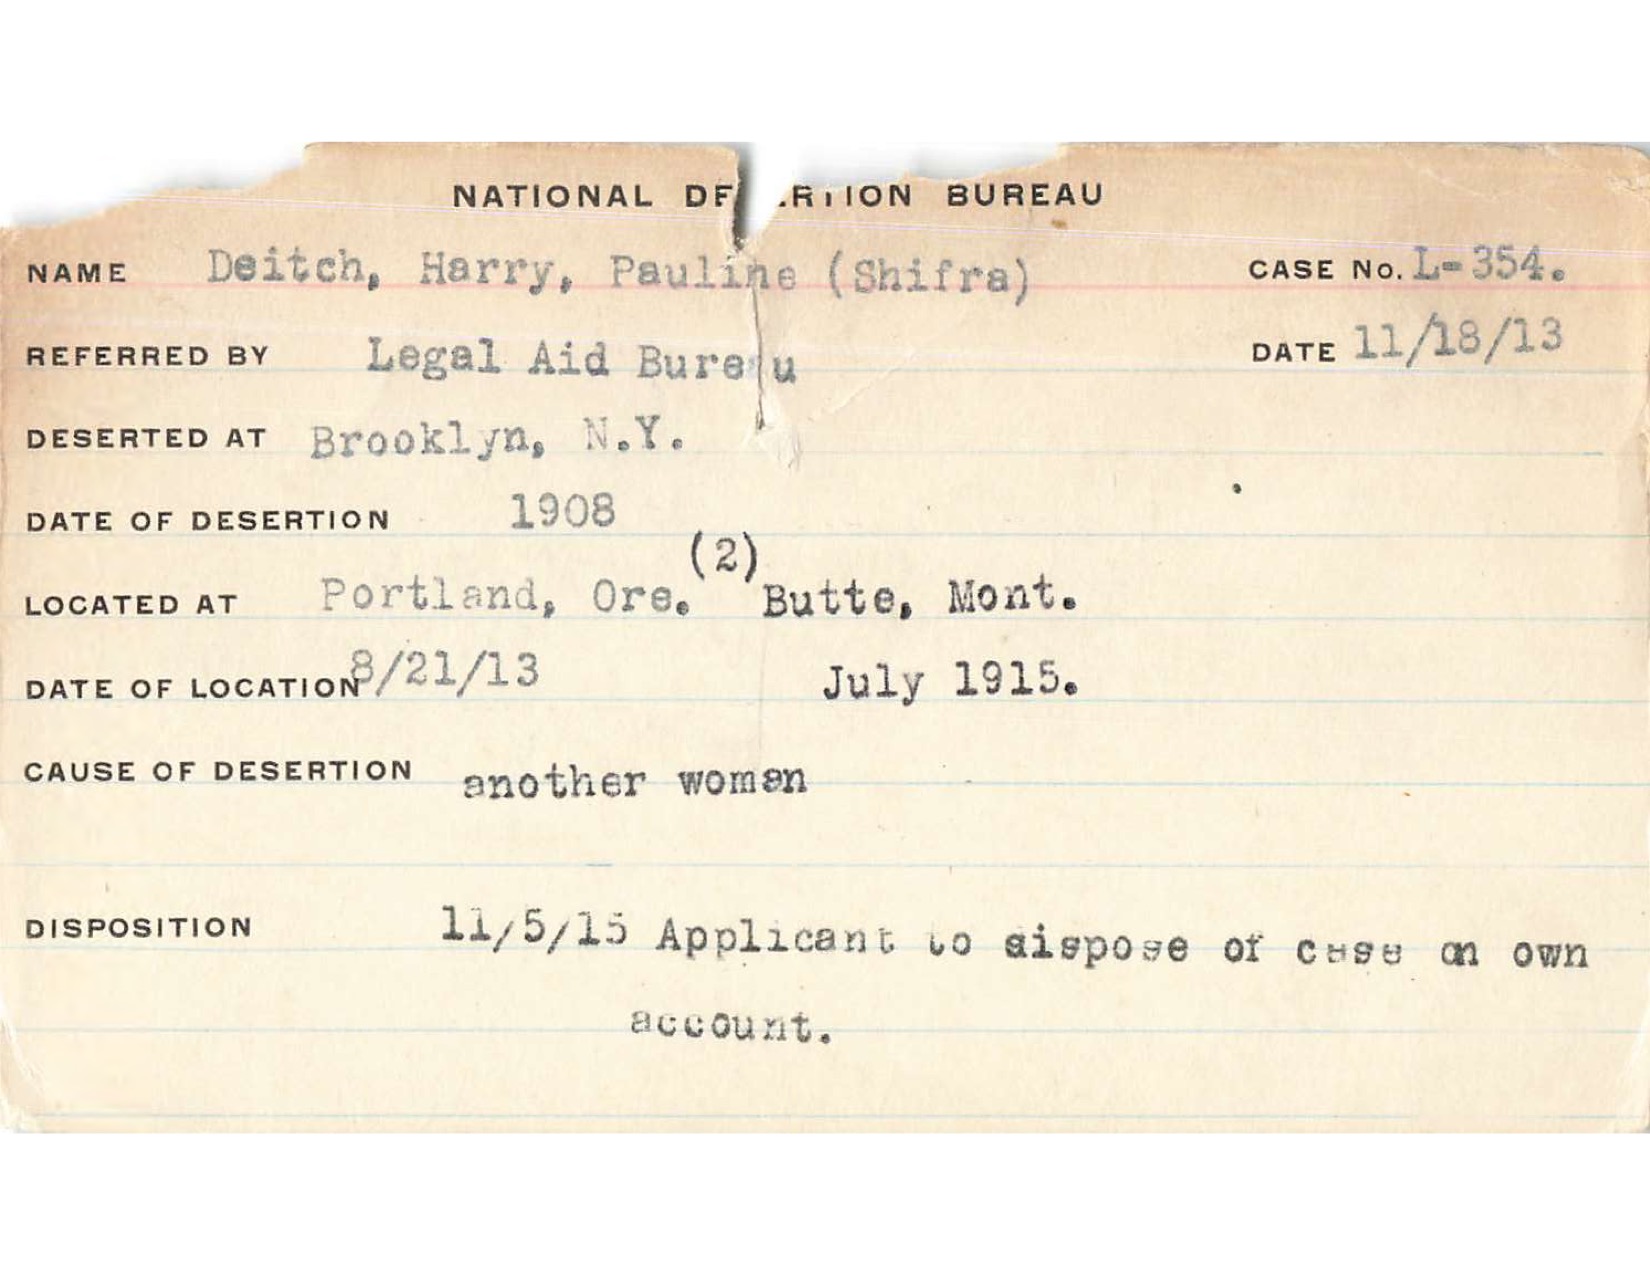 NATIONAL DESERTION BUREAU
NAME Deitch, Harry, Pauline (Shifra) CASE No. L-354.
REFERRED BY Legal Aid Bureau DATE 11/18/13
DESERTED AT Brooklyn, N.Y.
DATE OF DESERTION 1908
(2)
LOCATED AT Portland, Ore. Butte, Mont.
DATE OF LOCATION 8/21/13 July 1915.
CAUSE OF DESERTION another woman
DISPOSITION 11/5/15 Applicant to dispose of case on own
account.